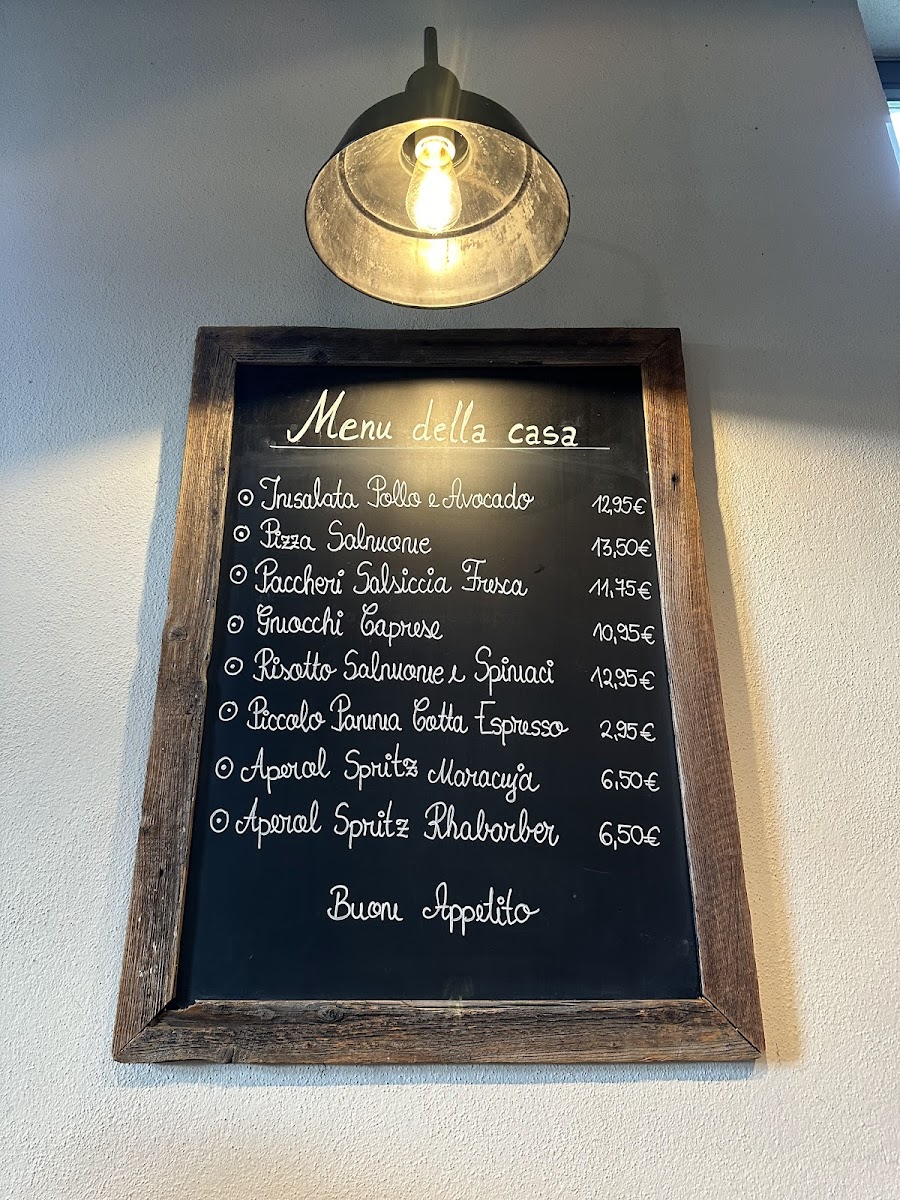 Menu della casa
Insalata Pollo e Avocado 12,95€
Pizza Salmone 13,50€
Paccheri Salsiccia Fresca 11,75€
Gnocchi Caprese 10,95€
Risotto Salmone e Spinaci 12,95€
Piccolo Panna Cotta Espresso 2,95€
Aperol Spritz Maracuja 6,50€
Aperol Spritz Rhabarber 6,50€
Buon Appetito